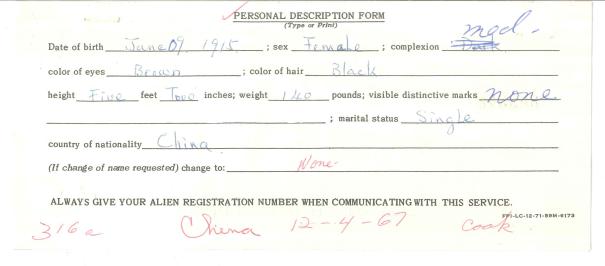 PERSONAL DESCRIPTION FORM
(Type or Print)
mqd.
Date of birth June 09, 1915 ; sex Female ; complexion Dark
color of eyes Brown ; color of hair Black
height Five feet Two inches; weight 140 pounds; visible distinctive marks none
; marital status Single
country of nationality China
(If change of name requested) change to: None
ALWAYS GIVE YOUR ALIEN REGISTRATION NUMBER WHEN COMMUNICATING WITH THIS SERVICE.
FPI-LC-12-71-55M-6173
316a China 12-4-67 Cook